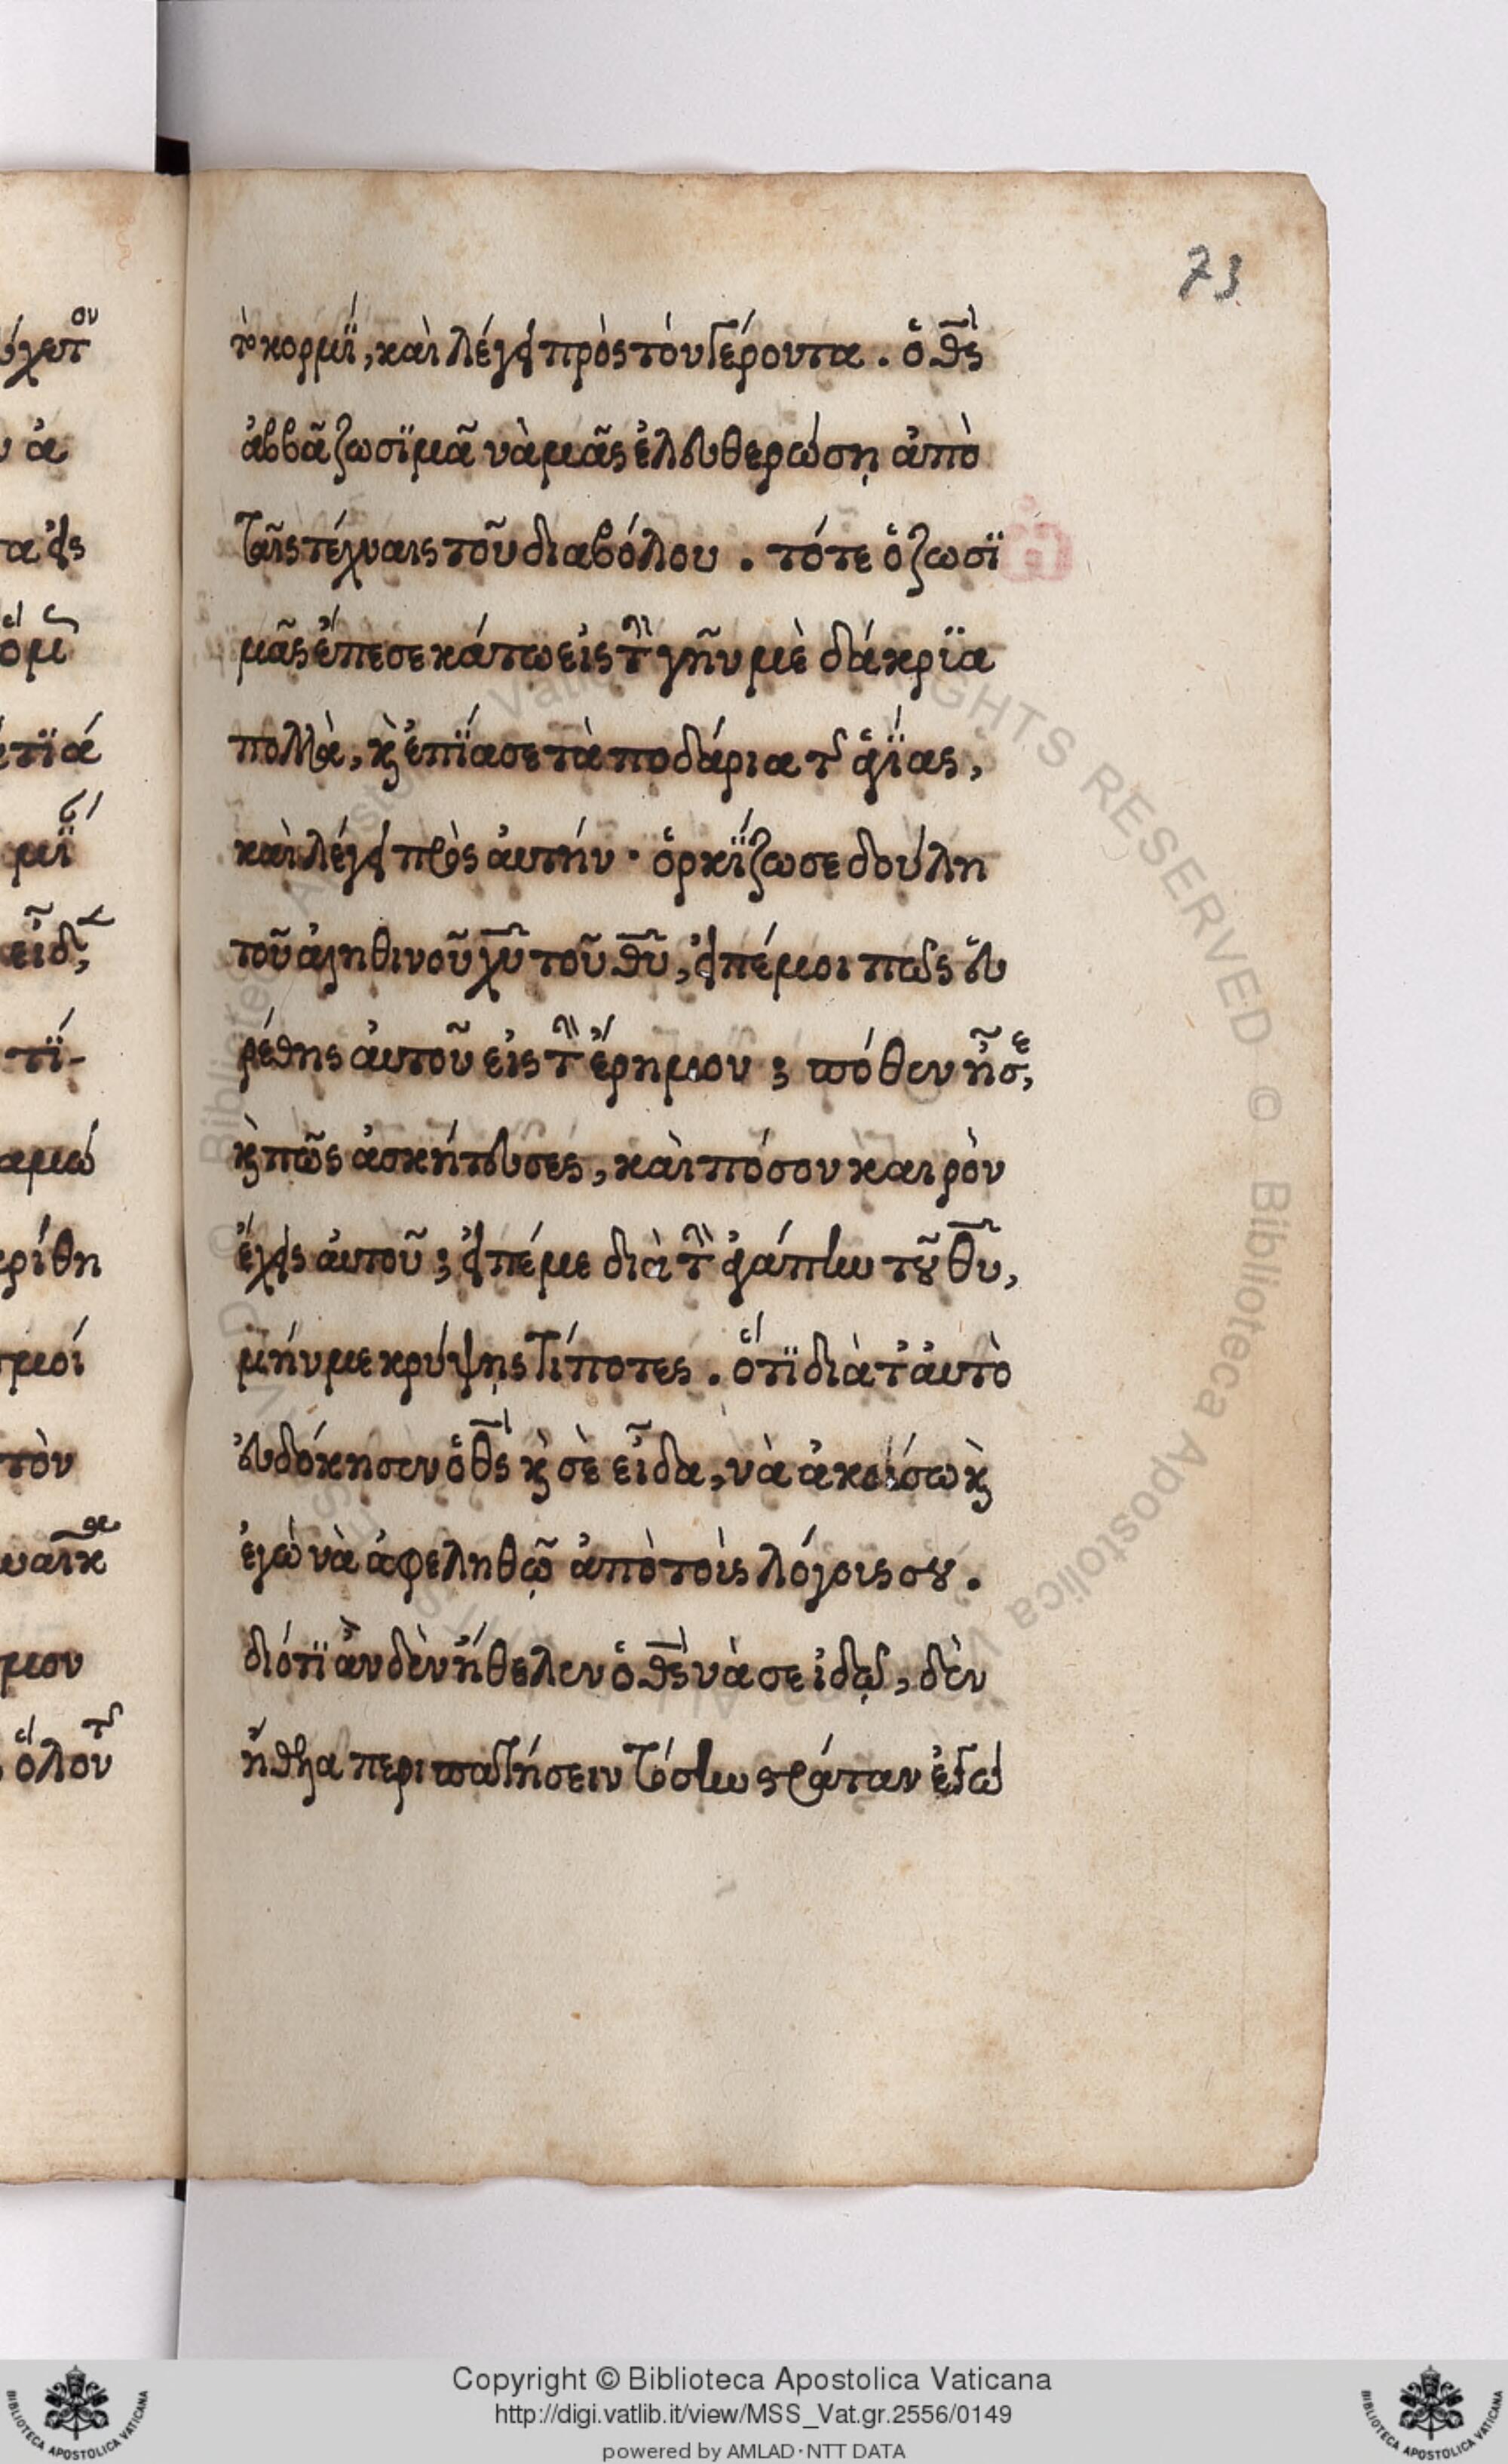 73
τὸ κορμΐ, καὶ λέγει πρὸς τὸν Γέροντα. ὁ θς
ἀββᾶ ζωσϊμᾶ νὰ μᾶς ἐλευθερώσῃ ἀπὸ
ταῖς τέχναις τοῦ διαβόλου. τότε ὁ ζωσϊ
μᾶς ἔπεσε κάτω εἰς τὴν γῆν μὲ δάκρϊα
πολλὰ, κ̀ ἐπΐασε τὰ ποδάρια τ ἁγΐας,
καὶ λέγει πρὸς ἀυτήν· ὁρκΐζω σε δούλη
τοῦ ἀληθινοῦ χυ τοῦ θυ, εἰπέ μοι πῶς ευ
ρέθης ἀυτοῦ εἰς τὴν ἔρημον; πόθεν ἦσε,
κ̀ πῶς ἀσκήτευσες, καὶ πόσον καιρὸν
ἔχεις ἀυτοῦ; εἰπέ με διὰ τὴν ἀγάπην τοῦ θυ,
μήν με κρύψῃς τίποτες. ὅτϊ διὰ τ ἀυτὸ
ἐυδόκησεν ὁ θς κ̀ σὲ εἶδα, νὰ ἀκούσω κ̀
ἐγὼ νὰ ἀφεληθῶ ἀπὸ τοὶς λόγοις σου.
διότϊ ἂν δὲν ἤθελεν ὁ θς νὰ σε ἰδῶ, δὲν
ἤθελα περιπατήσειν τόσην στράταν ἐδῶ
Copyright © Biblioteca Apostolica Vaticana
http://digi.vatlib.it/view/MSS_Vat.gr.2556/0149
powered by AMLAD·NTT DATA